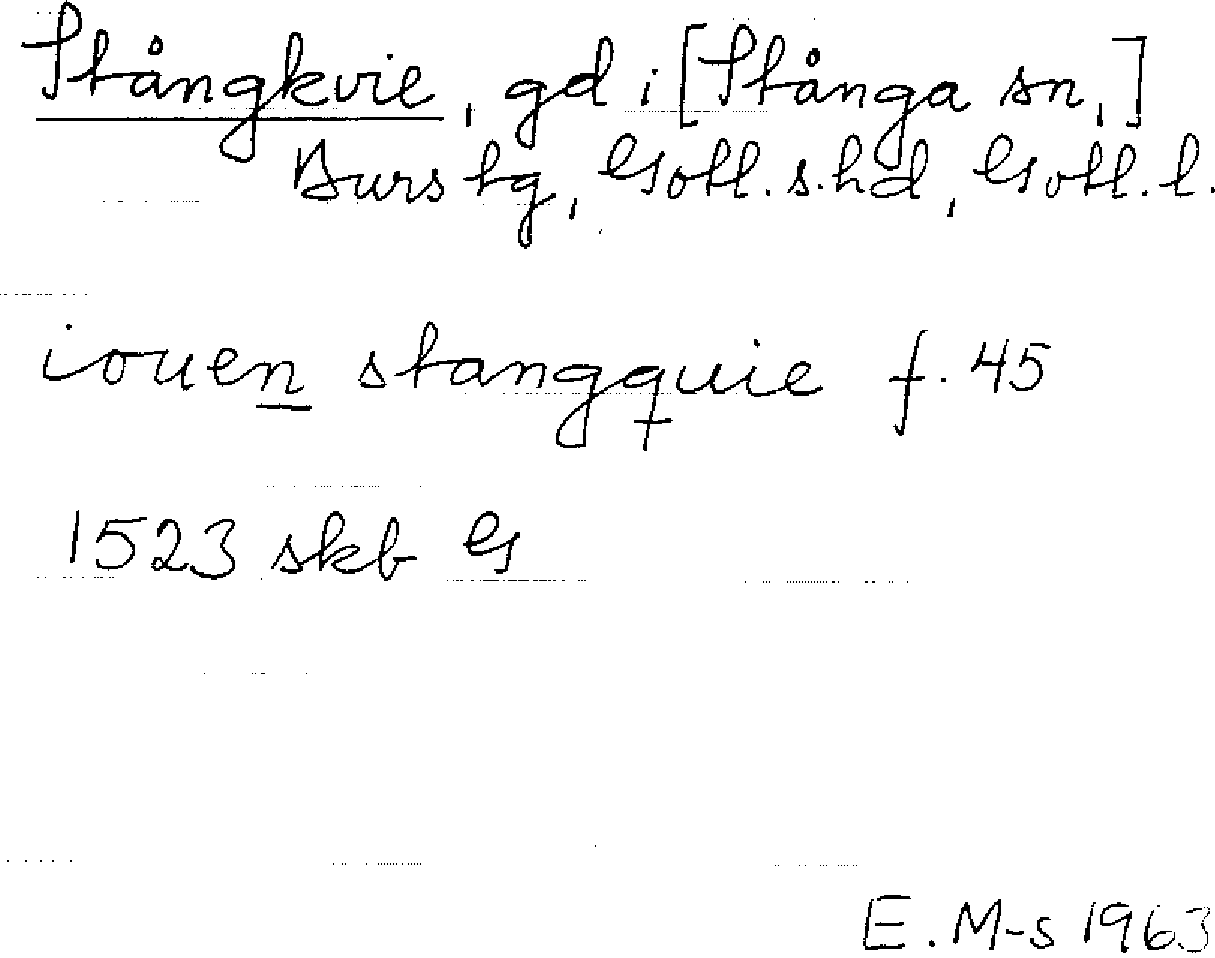 Stångkvie, gd i [Stånga sn,]
Burs tg, Gotl. s. hd, Gotl. l.
iouen stangquie f. 45
1523 skb G
E. M-s 1963